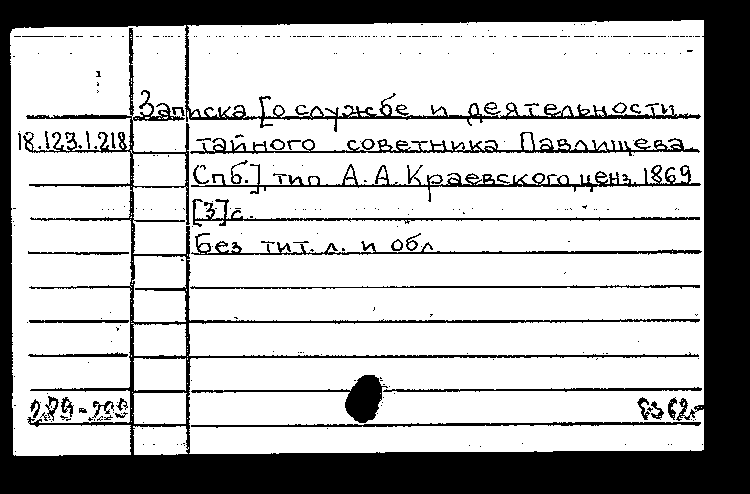 Записка [о службе и деятельности
18.123.1.218 тайного советника Павлищева
Спб.] тип. А.А. Краевского, ценз. 1869
[3]с.
Без тит. л. и обл.